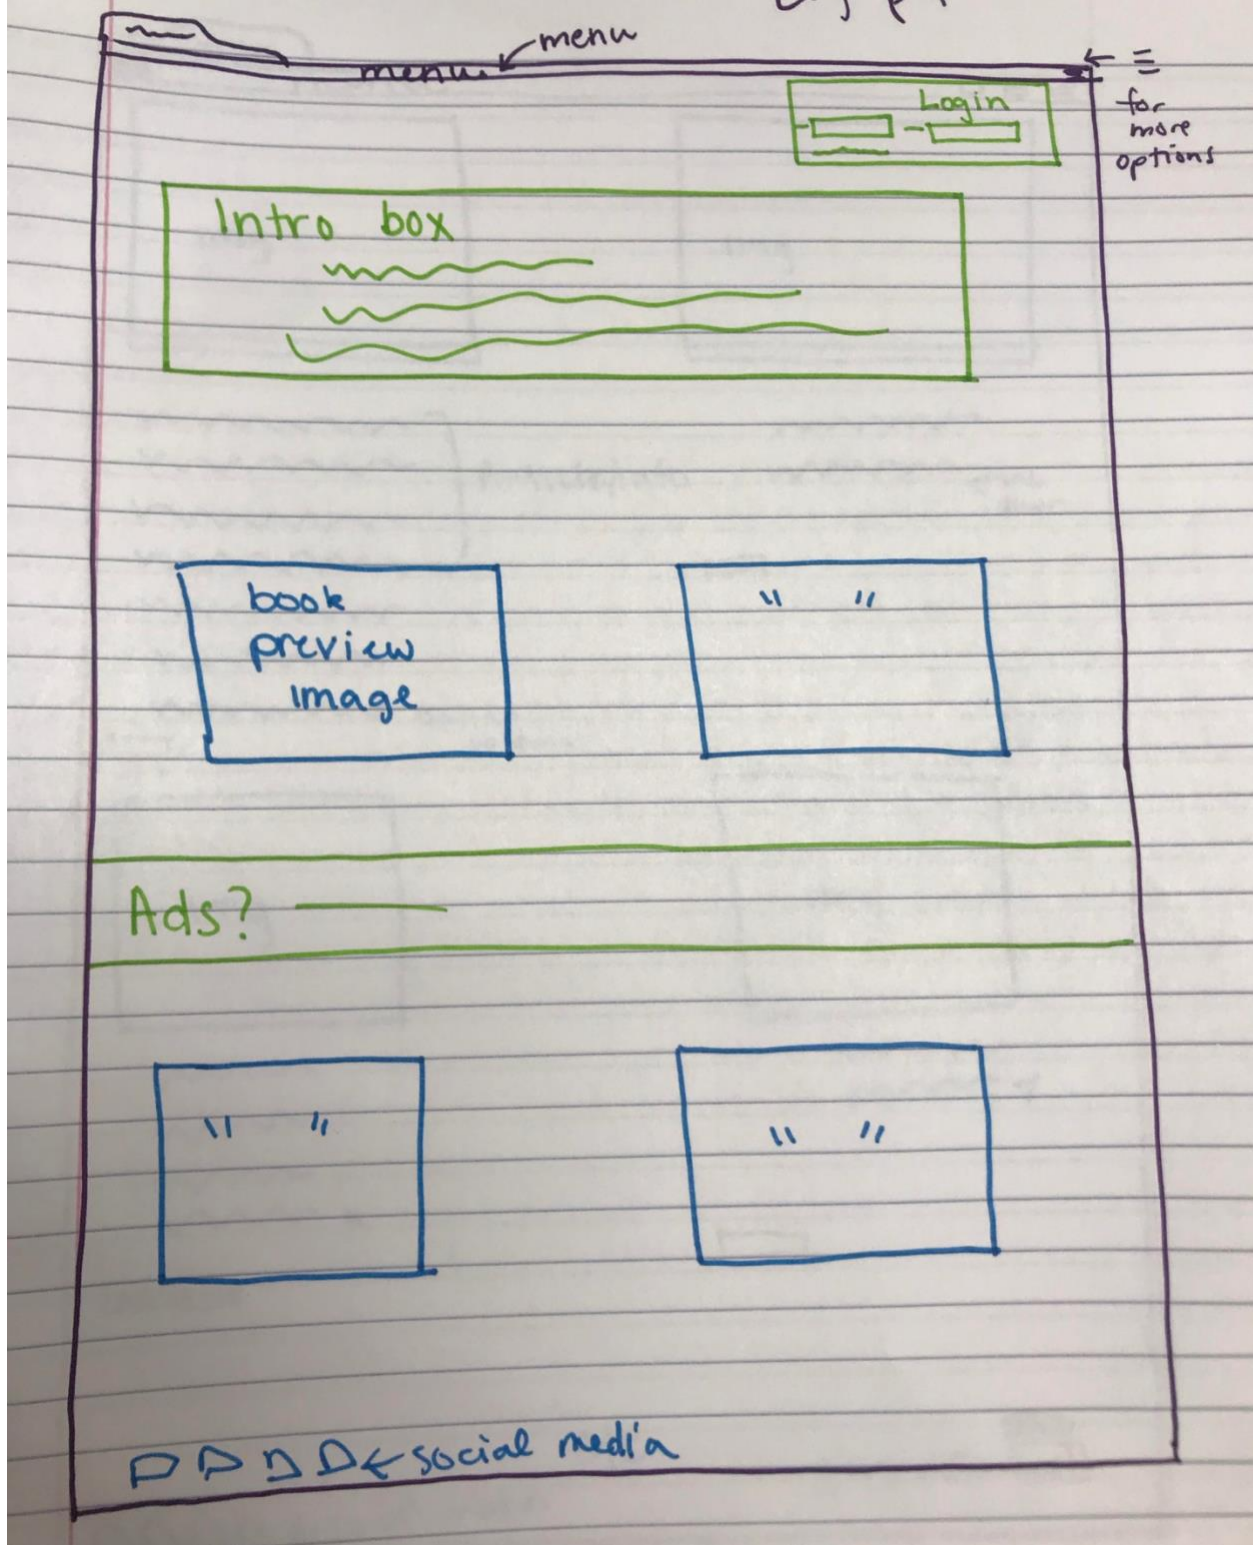 menu
menu
for
more
options
Login
Intro box
book
preview
image
" "
Ads?
" "
" "
social media